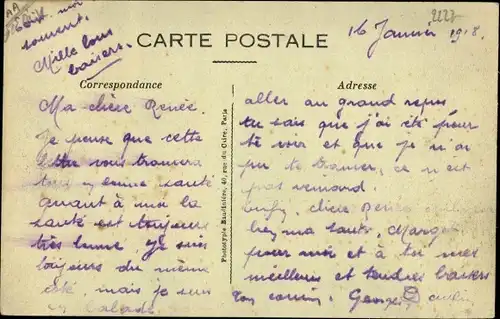 souvent.
Mille bons
baisers.
CARTE POSTALE
16 Janvier 1918.
Correspondance
Adresse
Ma chère Renée.
Je pense que cette
lettre vous trouvera
en bonne santé
quant à moi la
santé est toujours
très bonne. Je suis
toujours du même
côté, mais je suis
aller au grand repos
tu sais que j'ai été pour
te voir et que je n'ai
pu te trouver, ce n'est
pas
chère Renée
pour moi et à toi mes
meilleurs et tendres baisers
ton cousin. Georges
Phototypie Baudinière, 40, rue du Caire, Paris